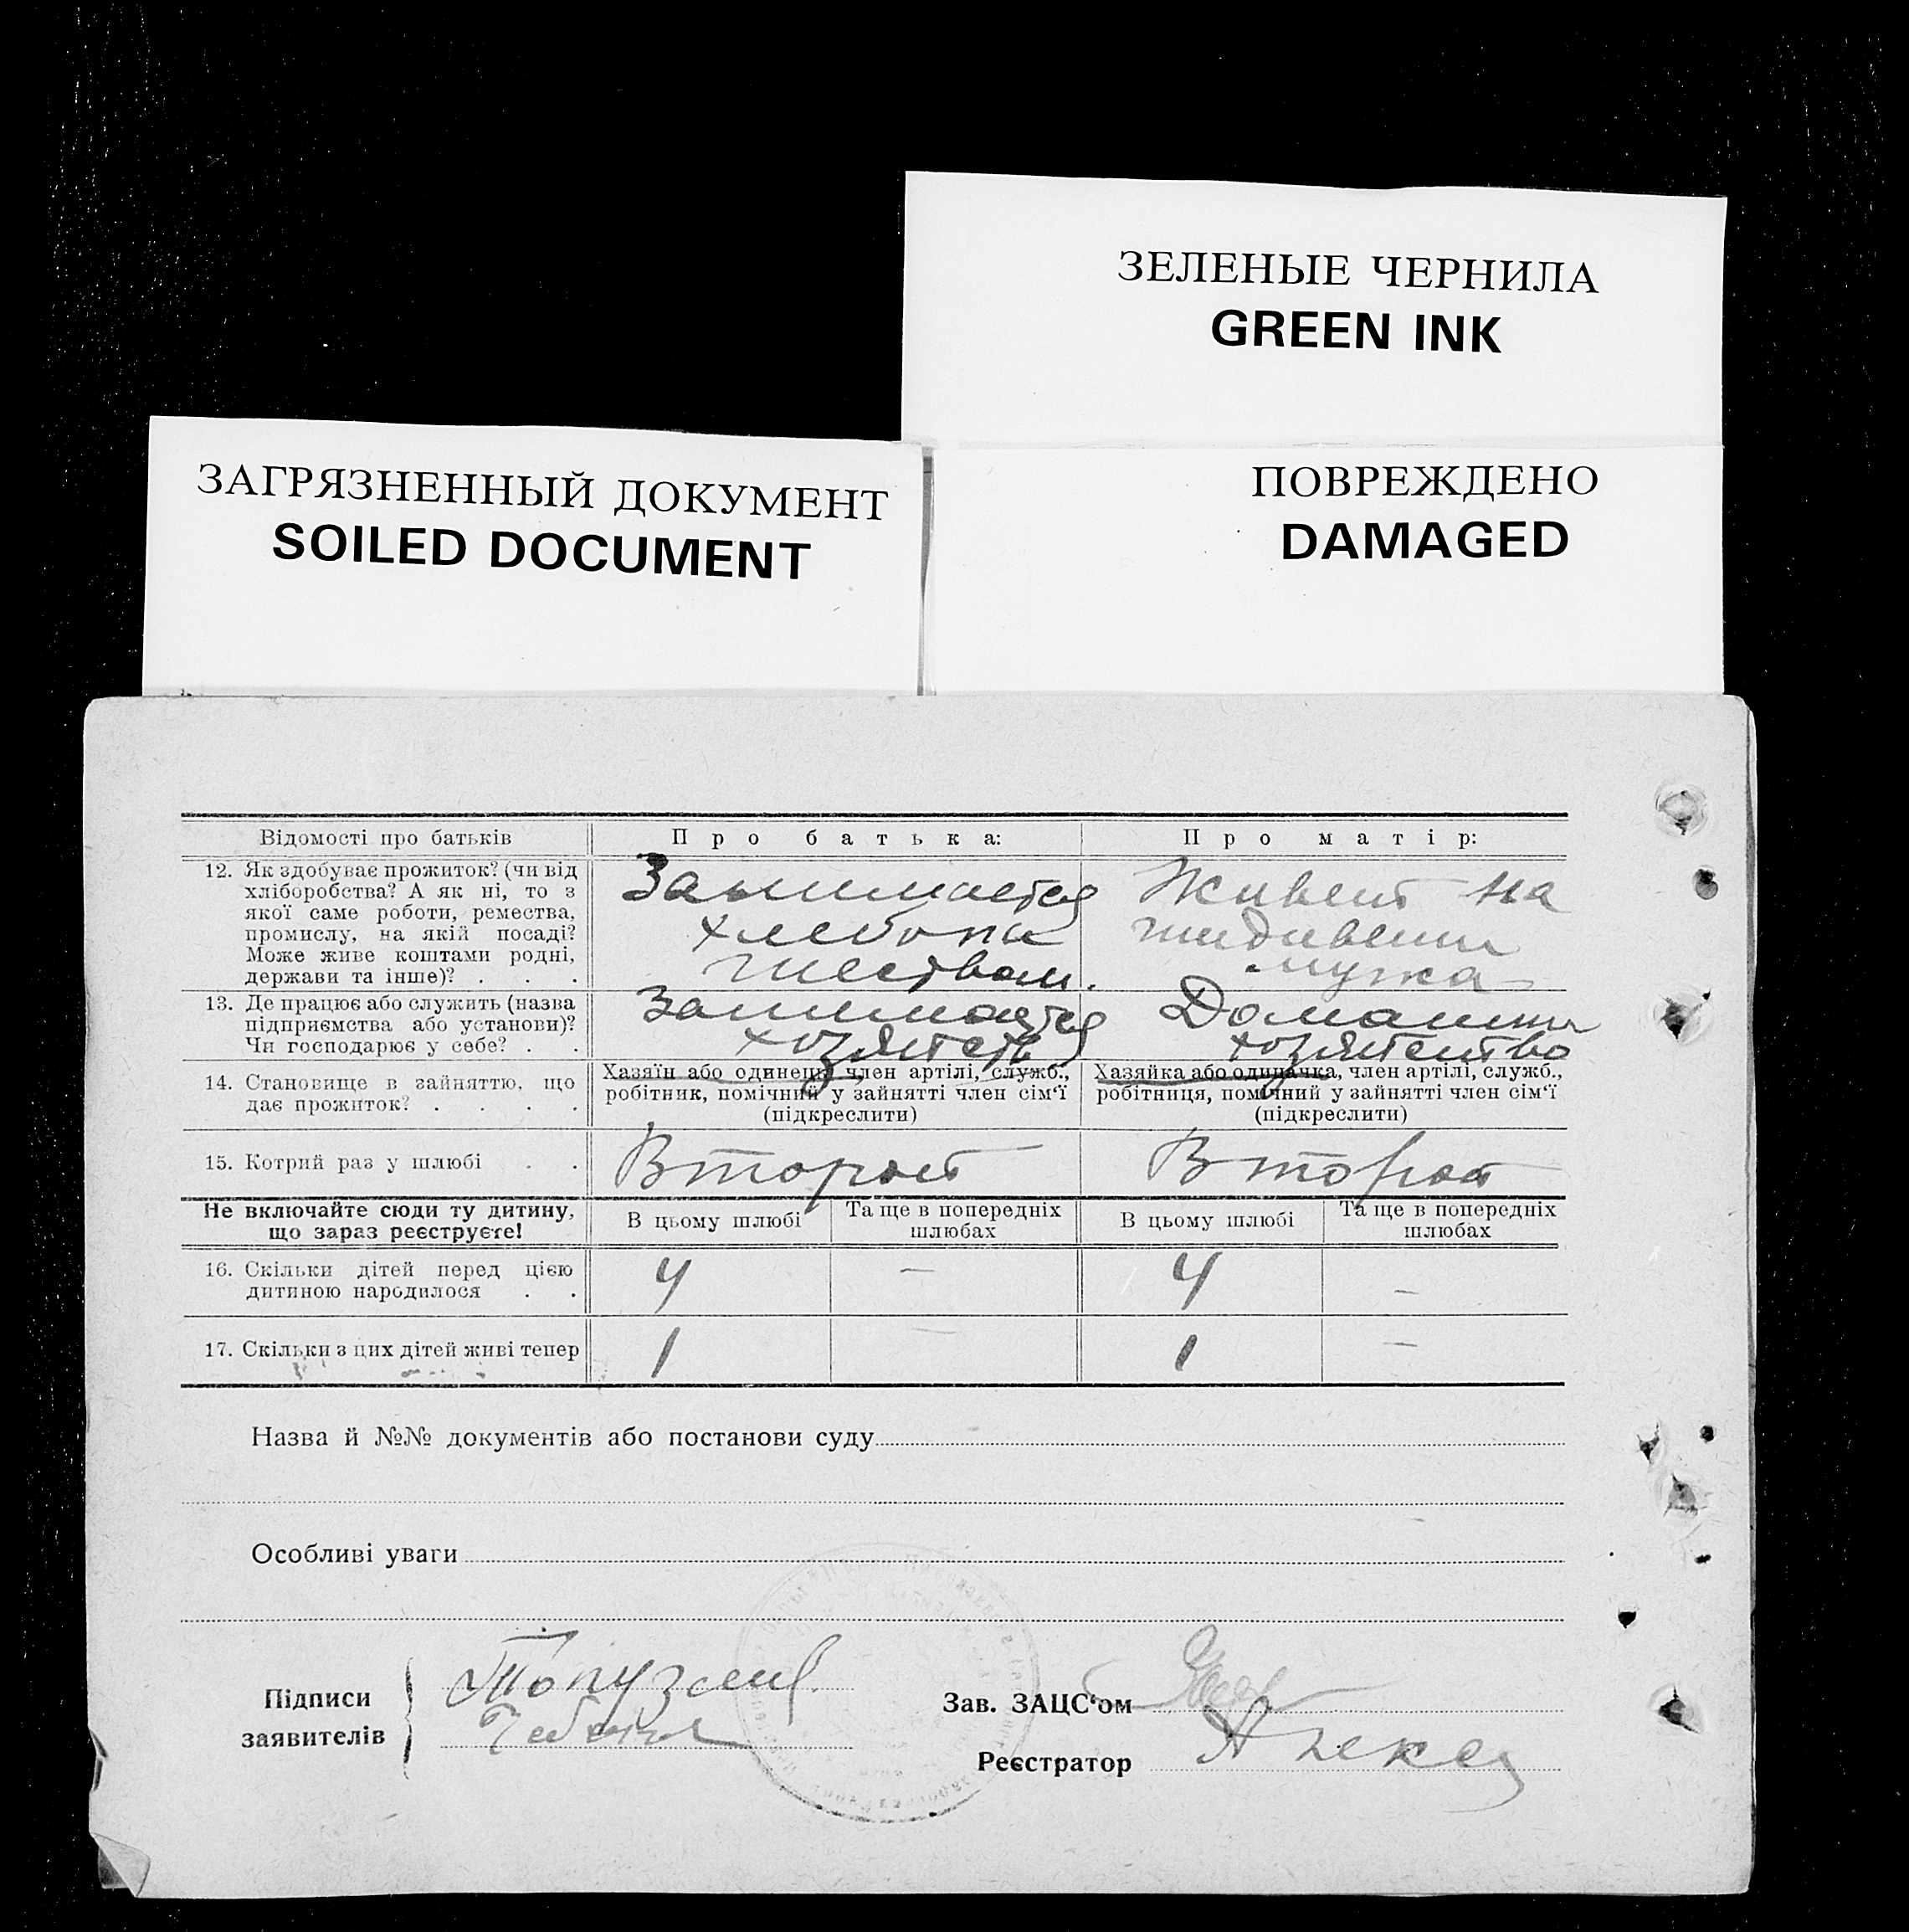 ЗЕЛЕНЫЕ ЧЕРНИЛА
GREEN INK
ЗАГРЯЗНЕННЫЙ ДОКУМЕНТ
SOILED DOCUMENT
ПОВРЕЖДЕНО
DAMAGED
Відомості про батьків
Про батька:
Про матір:
12. Як здобуває прожиток? (чи від
хліборобства? А як ні, то з
якої саме роботи, ремества,
промислу, на якій посаді?
Може живе коштами родні,
держави та інше)? . . .
Занимается
хлебопа
шеством.
Живет на
иждивении
мужа
13. Де працює або служить (назва
підприємства або установи)?
Чи господарює у себе? . .
Занимается
Домашни
14. Становище в зайняттю, що
дає прожиток? . . . .
Хазяїн або одинець, член артілі, служб.,
робітник, помічний у зайнятті член сім'ї
(підкреслити)
Хазяйка або одиначка, член артілі, служб.,
робітниця, помічний у зайнятті член сім'ї
(підкреслити)
15. Котрий раз у шлюбі . .
Второй
Второй
Не включайте сюди ту дитину,
що зараз реєструєте!
В цьому шлюбі
Та ще в попередніх
шлюбах
В цьому шлюбі
Та ще в попередніх
шлюбах
16. Скільки дітей перед цією
дитиною народилося . .
4
—
4
—
17. Скільки з цих дітей живі тепер
1
—
1
—
Назва й №№ документів або постанови суду
Особливі уваги
Підписи
заявителів
Зав. ЗАЦС'ом
Реєстратор